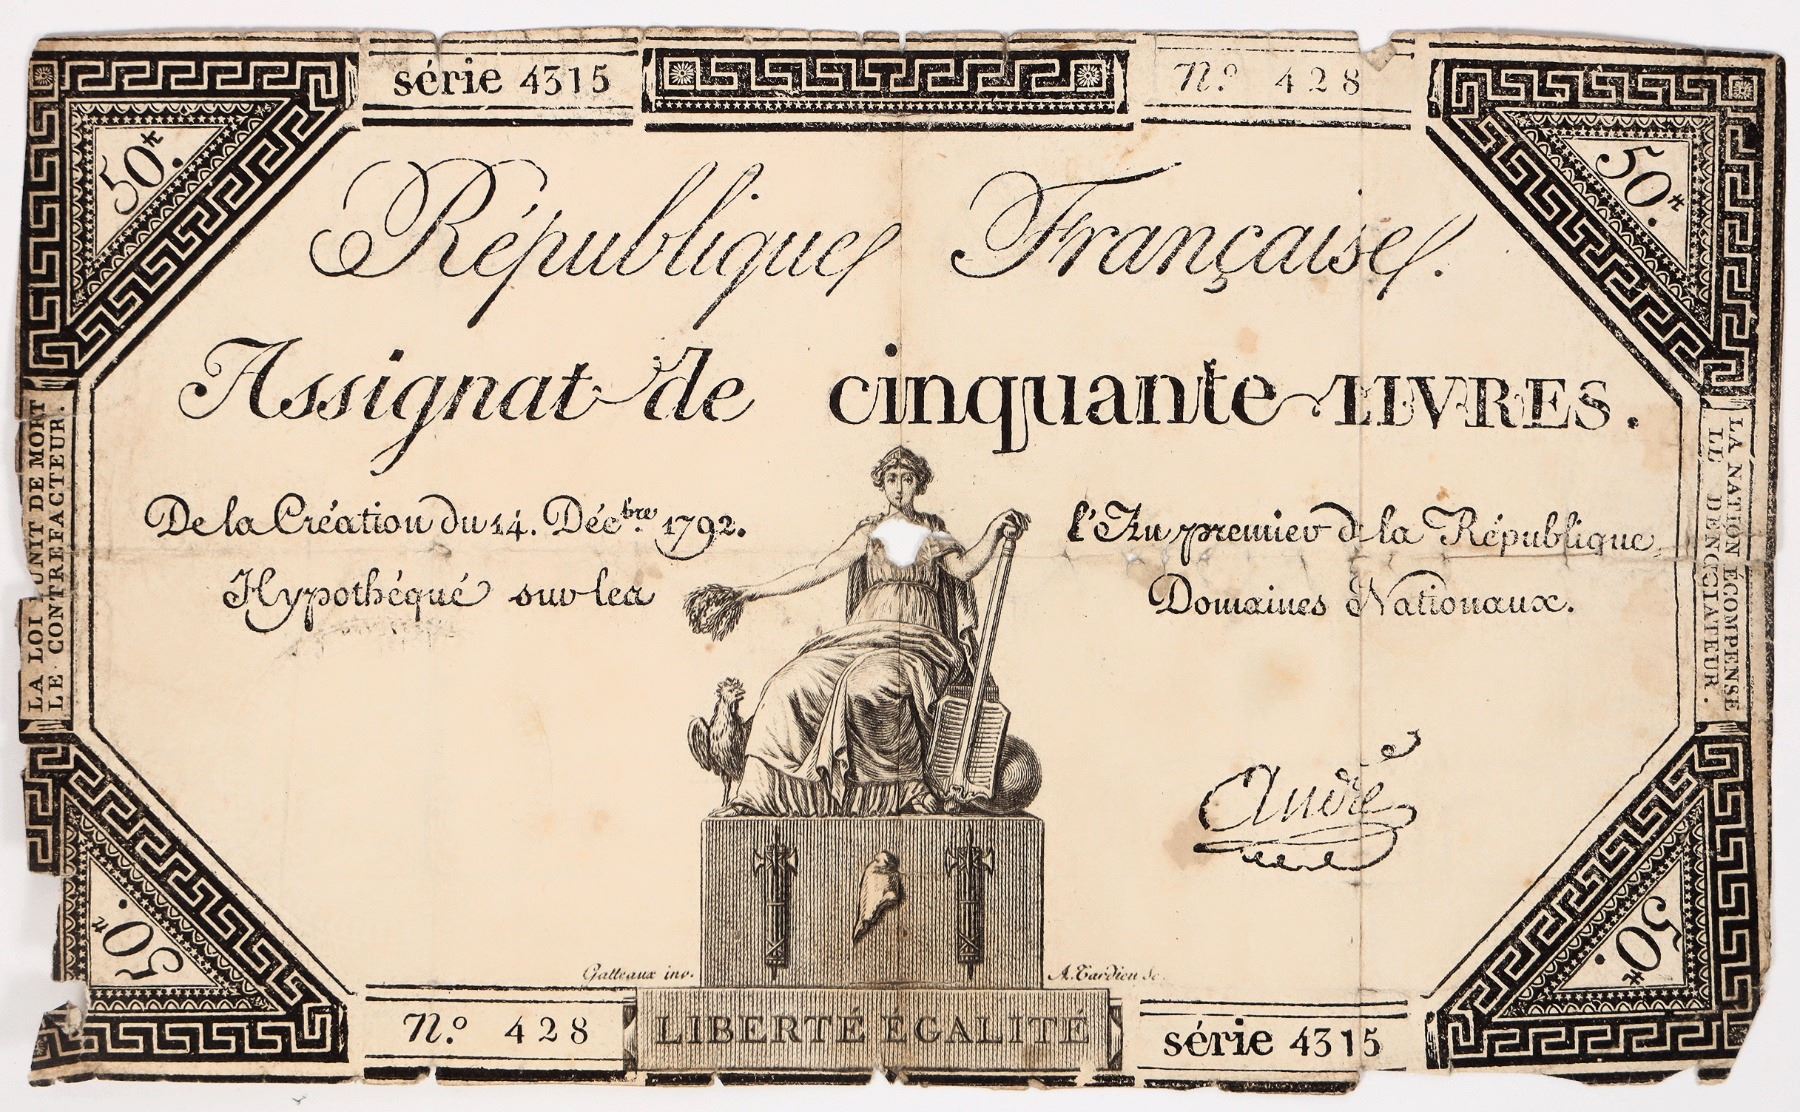 série 4315
N.º 428
50.tt
50.tt
République Française.
Assignat de cinquante LIVRES.
De la Création du 14. Décbre. 1792.
l'An premier d la République
Hypothéqué sur les
Domaines Nationaux.
LA LOI PUNIT DE MORT
LE CONTREFACTEUR.
LA NATION RÉCOMPENSE
LE DÉNONCIATEUR.
André
50.tt
50.tt
Gatteaux inv.
A. Tardieu sc.
N.º 428
LIBERTÉ ÉGALITÉ
série 4315